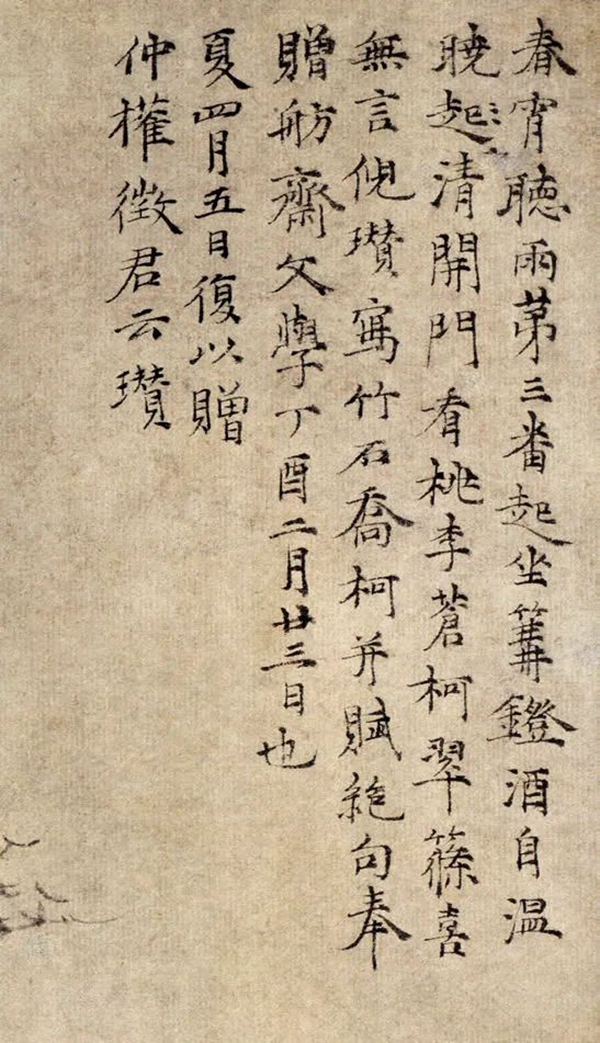 春宵聽雨苐三番起坐篝鐙酒自温
曉起清開門看桃李蒼柯翠篠喜
無言倪瓚寫竹石喬柯并賦絶句奉
贈舫齋文學丁酉二月廿三日也
夏四月五日復以贈
仲權徵君云瓚